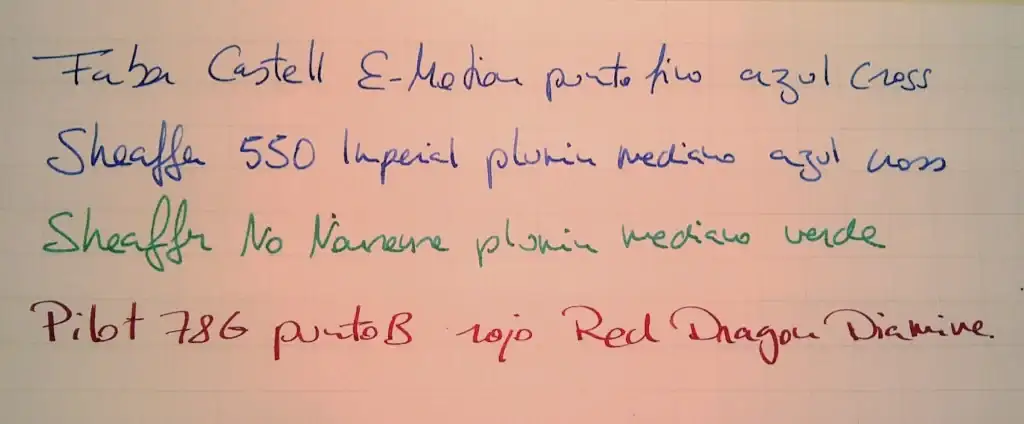 Faber Castell E-Motion punto fino azul cross
Sheaffer 550 Imperial plumin mediano azul cross
Sheaffer No Nonsense plumin mediano verde
Pilot 78G punto B rojo Red Dragon Diamine